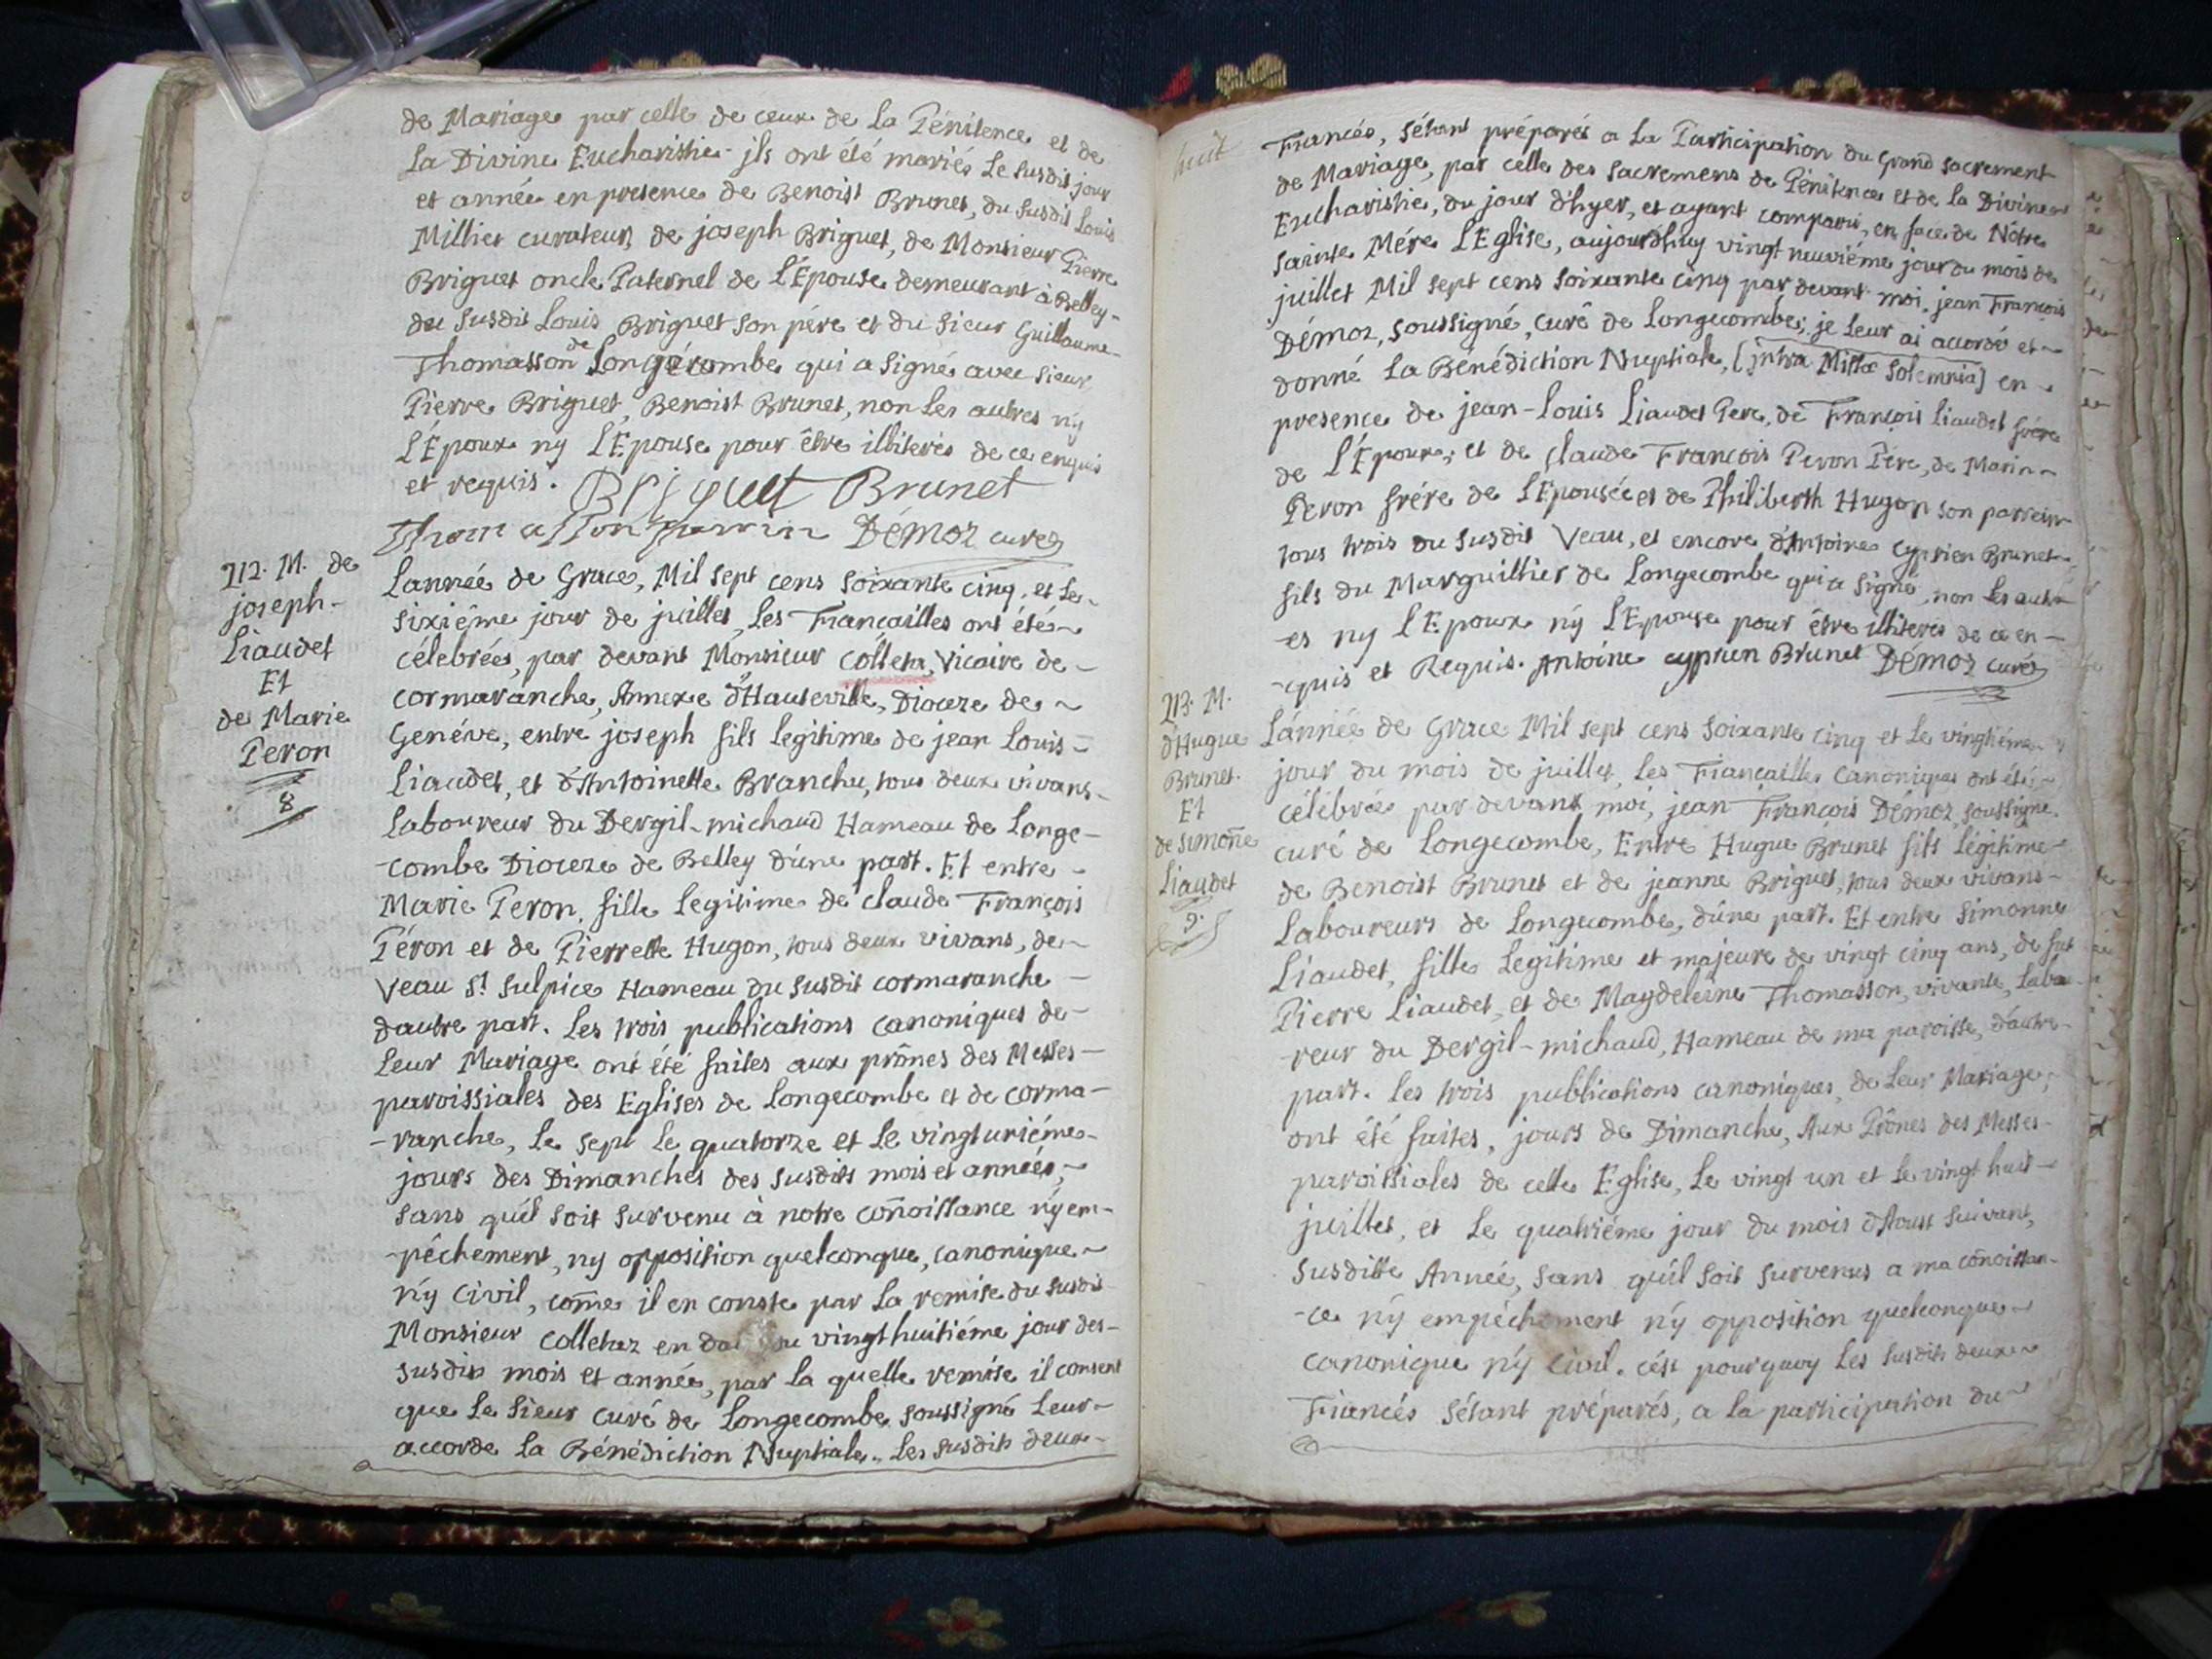 de Mariage par celle de ceux de La Pénitence et de
La Divine Eucharistie. jls ont été mariés Le susdit jour
et année en presence de Benoist Brunet, du susdit Louis
Milliet curateur de joseph Briguet, de Monsieur Pierre
Briguet oncle Paternel de L'Epouse demeurant à Belley-
du susdit Louis Briguet son pére et du sieur Guillaume-
Thomasson de Longecombe qui a signé avec sieur
Pierre Briguet, Benoist Brunet, non Les autres ny
L'Epoux ny L'Epouse pour être illiterés de ce enquis
et requis. Briguet Brunet
Thomasson Démoz curé
212. M. de
joseph-
Liaudet
Et
de Marie
Peron
8
Lannée de Grace, Mil sept cens soixante cinq, et Le-
sixiéme jour de juillet, Les Fiançailles ont été-
célebrées, par devant Monsieur Colletaz, Vicaire de-
cormaranche, Annexe d'Hauteville, Dioceze de-
Genéve, entre joseph fils Legitime de jean Louis-
Liaudet, et d'Antoinette Branchu, tous deux vivans-
Laboureur du Dergil-michaud Hameau de Longe-
-combe Dioceze de Belley d'une part. Et entre-
Marie Peron, fille Legitime de claude François
Péron et de Pierrette Hugon, tous deux vivans, de-
Veau St. Sulpice Hameau du susdit cormaranche-
dautre part. Les trois publications canoniques de-
Leur Mariage ont été faites aux prônes des Messes-
paroissiales des Eglises de Longecombe et de corma-
-ranche, Le sept Le quatorze et Le vingtuniéme-
jours des Dimanches des susdits mois et année,-
sans qu'il soit survenu à notre connoissance ny em-
-péchement, ny opposition quelconque, canonique-
ny civil, come il en conste par La remise du susdit
Monsieur colletaz en du vingt huitiéme jour des-
susdits mois et année, par la quelle remise il consent
que Le sieur curé de Longecombe soussigné Leur-
accorde La Bénédiction Nuptiale. Les susdits deux-
huit
Fiancés, s'étant préparés a La Participation du Grand sacrement
de Mariage, par celle des sacremens de Pénitence et de la Divine
Eucharistie, du jour d'hyer, et ayant comparu, en face de Nôtre
sainte Mére L'Eglise, aujourdhuy vingt neuviéme jour du mois de
juillet Mil sept cens soixante cinq par devant moi, jean François
Démoz, soussigné, curé de Longecombe; je Leur ai accordé et-
donné La Bénédiction Nuptiale, [jntra Missæ solemnia] en-
presence de jean-Louis Liaudet Pere, de François Liaudet frére
de L'Epoux; et de claude François Peron Pére, de Marin-
Peron frére de L'Epousée et de Philiberth Hugon son parrein
tous trois du susdit Veau, et encore d'Antoine cyprien Brunet-
fils du Marguillier de Longecombe qui a signé, non Les autr-
-es ny L'Epoux ny L'Epouse pour être illiteres de ce en-
-quis et Requis. Antoine cyprien Brunet Démoz curé
213. M.
d'Hugue
Brunet.
Et
de simone
Liaudet
9.
Lánnée de Grace Mil sept cens soixante cinq et Le vingtiéme-
jour du mois de juillet, Les Fiançailles canoniques ont été-
célébrées par devant moi, jean François Démoz, soussigné.
curé de Longecombe, Entre Hugue Brunet fils Légitime-
de Benoist Brunet et de jeanne Briguet, tous deux vivans-
Laboureurs de Longecombe, dûne part. Et entre simonne
Liaudet, fille Legitime et majeure de vingt cinq ans, de fut
Pierre Liaudet, et de Magdeleine Thomasson, vivante, Labou-
-reur du Dergil-michaud, Hameau de ma paroisse, d'autre-
part. Les trois publications canoniques, de Leur Mariage,
ont été faites, jours de Dimanche, Aux Prônes des Messes-
paroissiales de cette Eglise, Le vingt un et Le vingt huit-
juillet, et Le quatriéme jour du mois d'Aoust suivant,
susditte Année, sans qu'il soit survenus a ma conoissan-
-ce ny empéchement ny opposition quelconque-
canonique ny civil. c'ést pourquoy Les susdits deux-
Fiancés s'étant préparés, a la participation du-